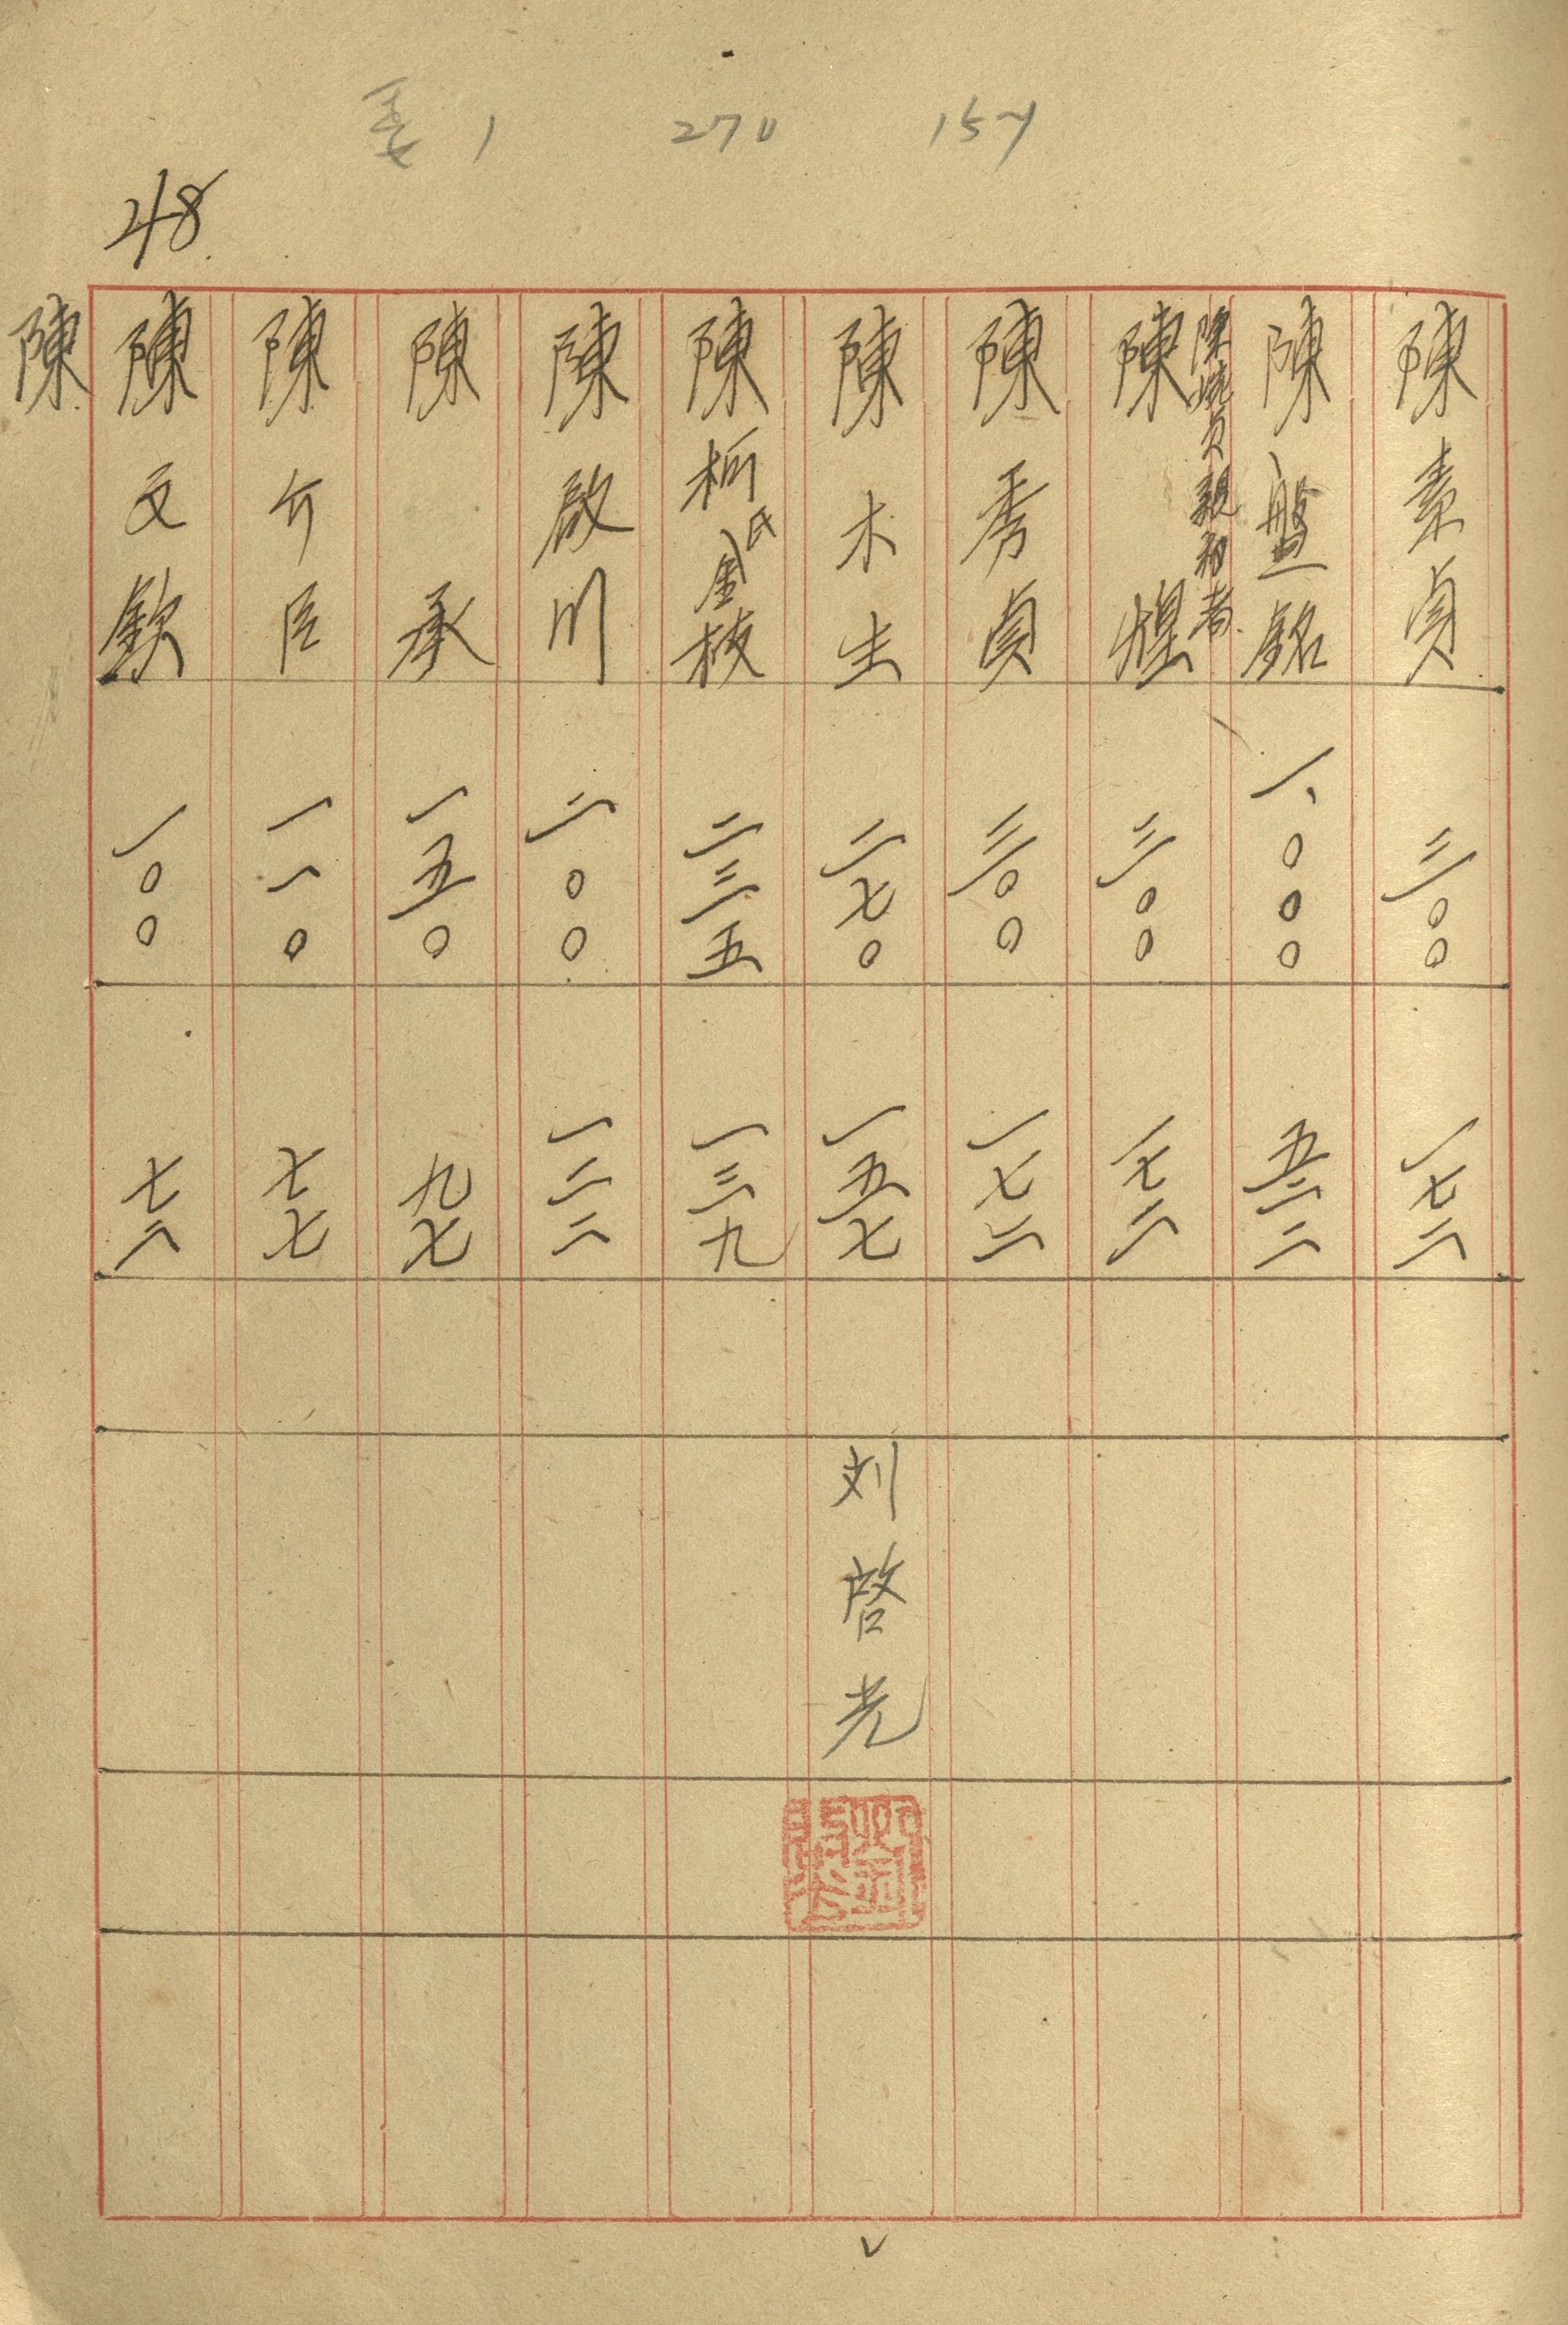 1 270 157
48
陳素貞 三〇〇 一七二
陳盤銘 一、〇〇〇 五二二
陳煌 三〇〇 一七二
陳秀貞 三〇〇 一七二
陳木生 二七〇 一五七 刘啓光
陳柳氏金枝 二三五 一三九
陳啟川 二〇〇 一二二
陳承 一五〇 九七
陳介臣 一一〇 七七
陳文欽 一〇〇 七二
陳